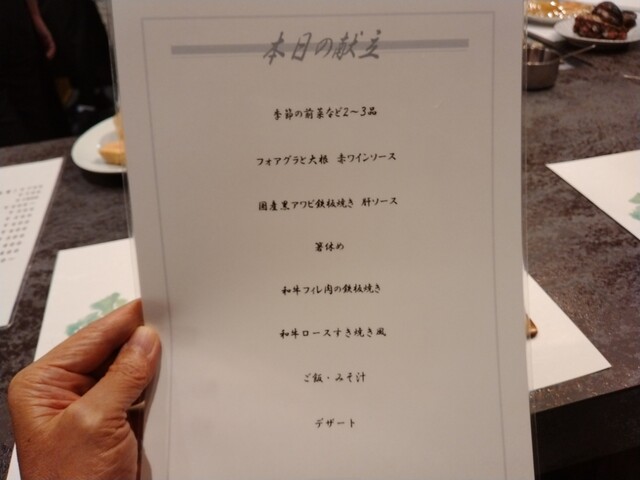 本日の献立
季節の前菜など2～3品
フォアグラと大根 赤ワインソース
国産黒アワビ鉄板焼き 肝ソース
箸休め
和牛フィレ肉の鉄板焼き
和牛ロースすき焼き風
ご飯・みそ汁
デザート